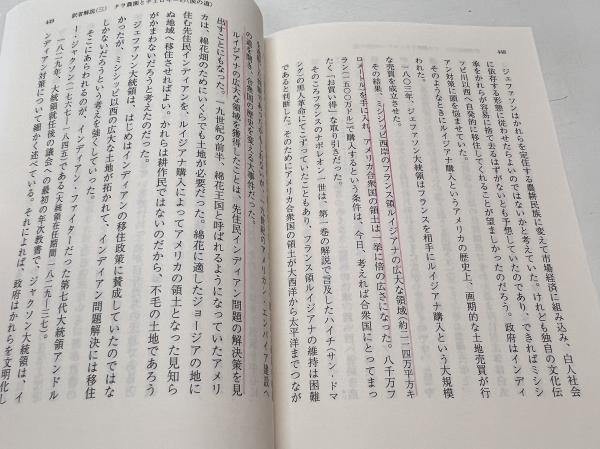 448
ジェファソンはかれらを定住する農耕民族に変えて市場経済に組み込み、白人社会
に依存する形態に従わせたらよいのではないかと考えていた。けれども独自の文化伝
統をかれらが容易に捨て去るはずがないとも予想していたのであり、できればミシシ
ッピ川以西へ自発的に移住してくれることが望ましかったのだろう。政府はインディ
アン対策に頭を悩ませていた。
そのようなときにルイジアナ購入というアメリカの歴史上、画期的な土地売買が行
われた。
一八〇三年、ジェファソン大統領はフランスを相手にルイジアナ購入という大規模
な売買を成立させた。
その結果、ミシシッピ西岸のフランス領ルイジアナの広大な領域(約二一四万平方キ
ロメートル)を手に入れ、アメリカ合衆国の領土は一挙に倍の広さになった。八千万フ
ラン(一五〇〇万ドル)で購入するという条件は、今日、考えれば合衆国にとってまっ
たく「お買い得」な取り引きだった。
そのころフランスのナポレオン一世は、第一巻の解説で言及したハイチ(サン・ドマ
ング)の黒人革命にてこずっていたこともあり、フランス領ルイジアナの維持は困難
であると判断した。そのためにアメリカ合衆国の領土が大西洋から太平洋までつなが
449 訳者解説(三) タラ農園とチェロキーの〈涙の道〉
アメリカン・エンパイア建設へ
の道を開き、合衆国の歴史を変える大事件だった。
ルイジアナの広大な領域を獲得したことは、先住民インディアン問題の解決策を見
出すことにもなった。一九世紀の前半、綿花王国と呼ばれるようになっていたアメリ
カは、綿花畑のためにいくらでも土地が必要だった。綿花に適したジョージアの地に
住む先住民インディアンを、ルイジアナ購入によってアメリカの領土となった見知ら
ぬ地域へ移住させればよい。かれらは耕作民ではないのだから、不毛の土地であろう
がかまわないだろうと考えたのだった。
ジェファソン大統領は、はじめはインディアンの移住政策に賛成していたのではな
かったが、ミシシッピ以西の広大な土地が拓かれて、インディアン問題解決には移住
しかないだろうと考えを強くしていった。
そこにあらわれるのが、インディアン・ファイターだった第七代大統領アンドル
ー・ジャクソン(一七六七―一八四五である(大統領在任期間一八二九―三七)。
一八二九年、大統領就任後の議会への最初の年次教書で、ジャクソン大統領は、イ
ンディアン対策について細かく述べている。それによれば、政府はかれらを文明化し